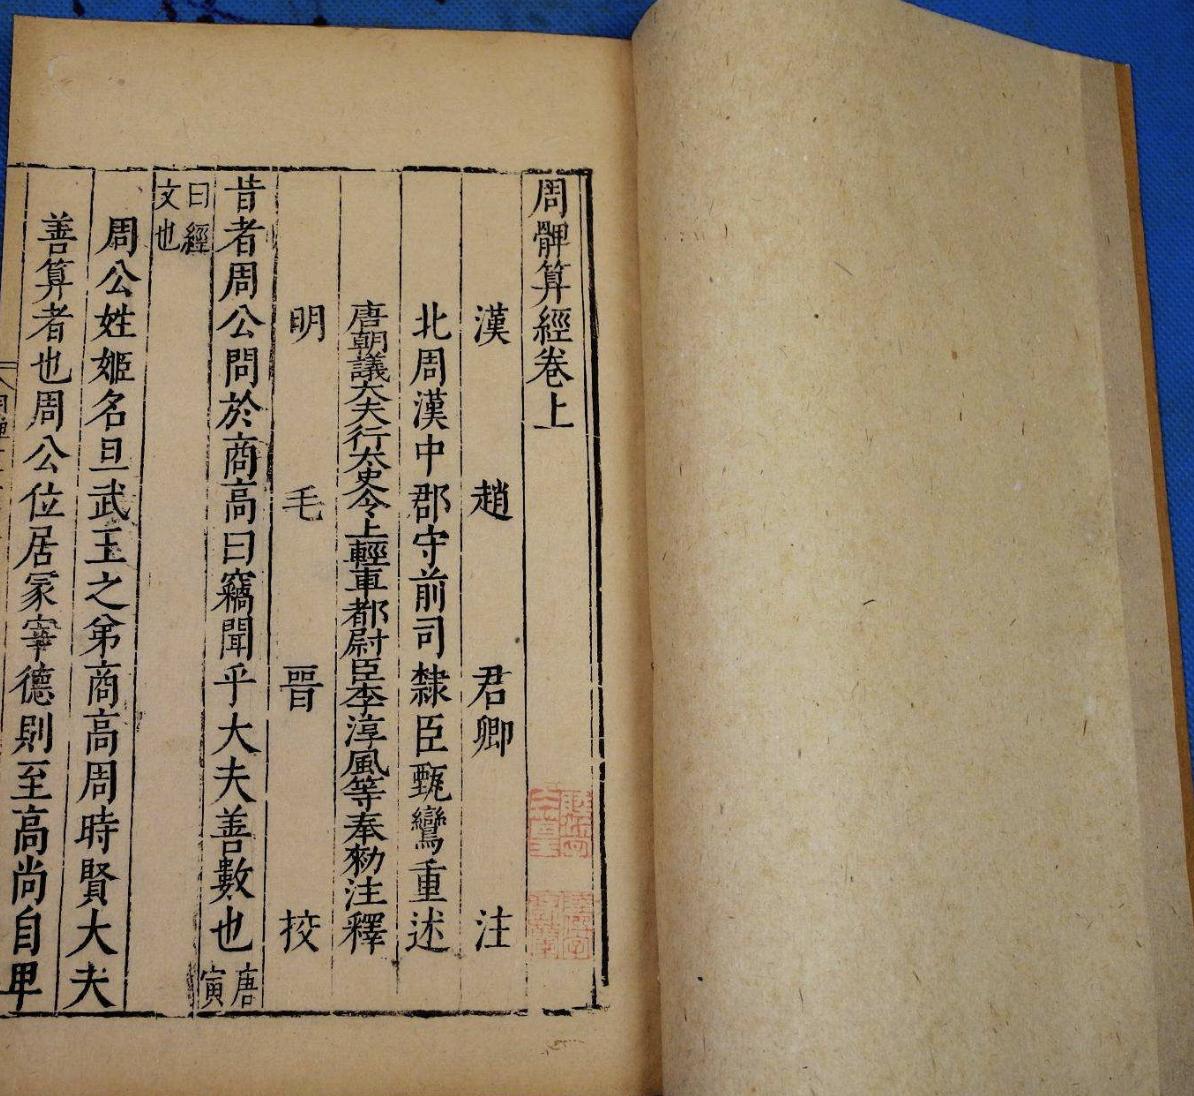 周髀算經卷上
漢 趙 君卿 注
北周漢中郡守前司隸臣甄鸞重述
唐朝議大夫行太史令上輕車都尉臣李淳風等奉勑注釋
明 毛 晉 挍
昔者周公問於商高曰竊聞乎大夫善數也唐寅
曰經文也
周公姓姬名旦武王之弟商高周時賢大夫
善算者也周公位居冢宰德則至高尚自卑